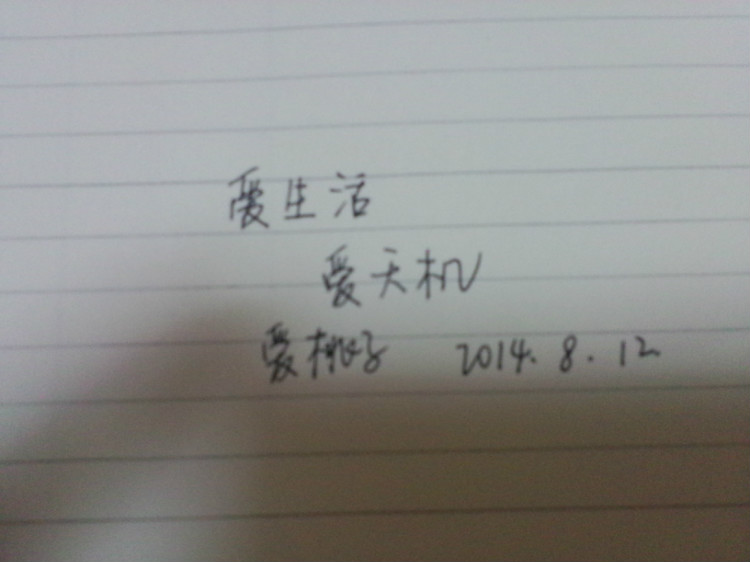 爱生活
爱天机
爱桃子 2014.8.12